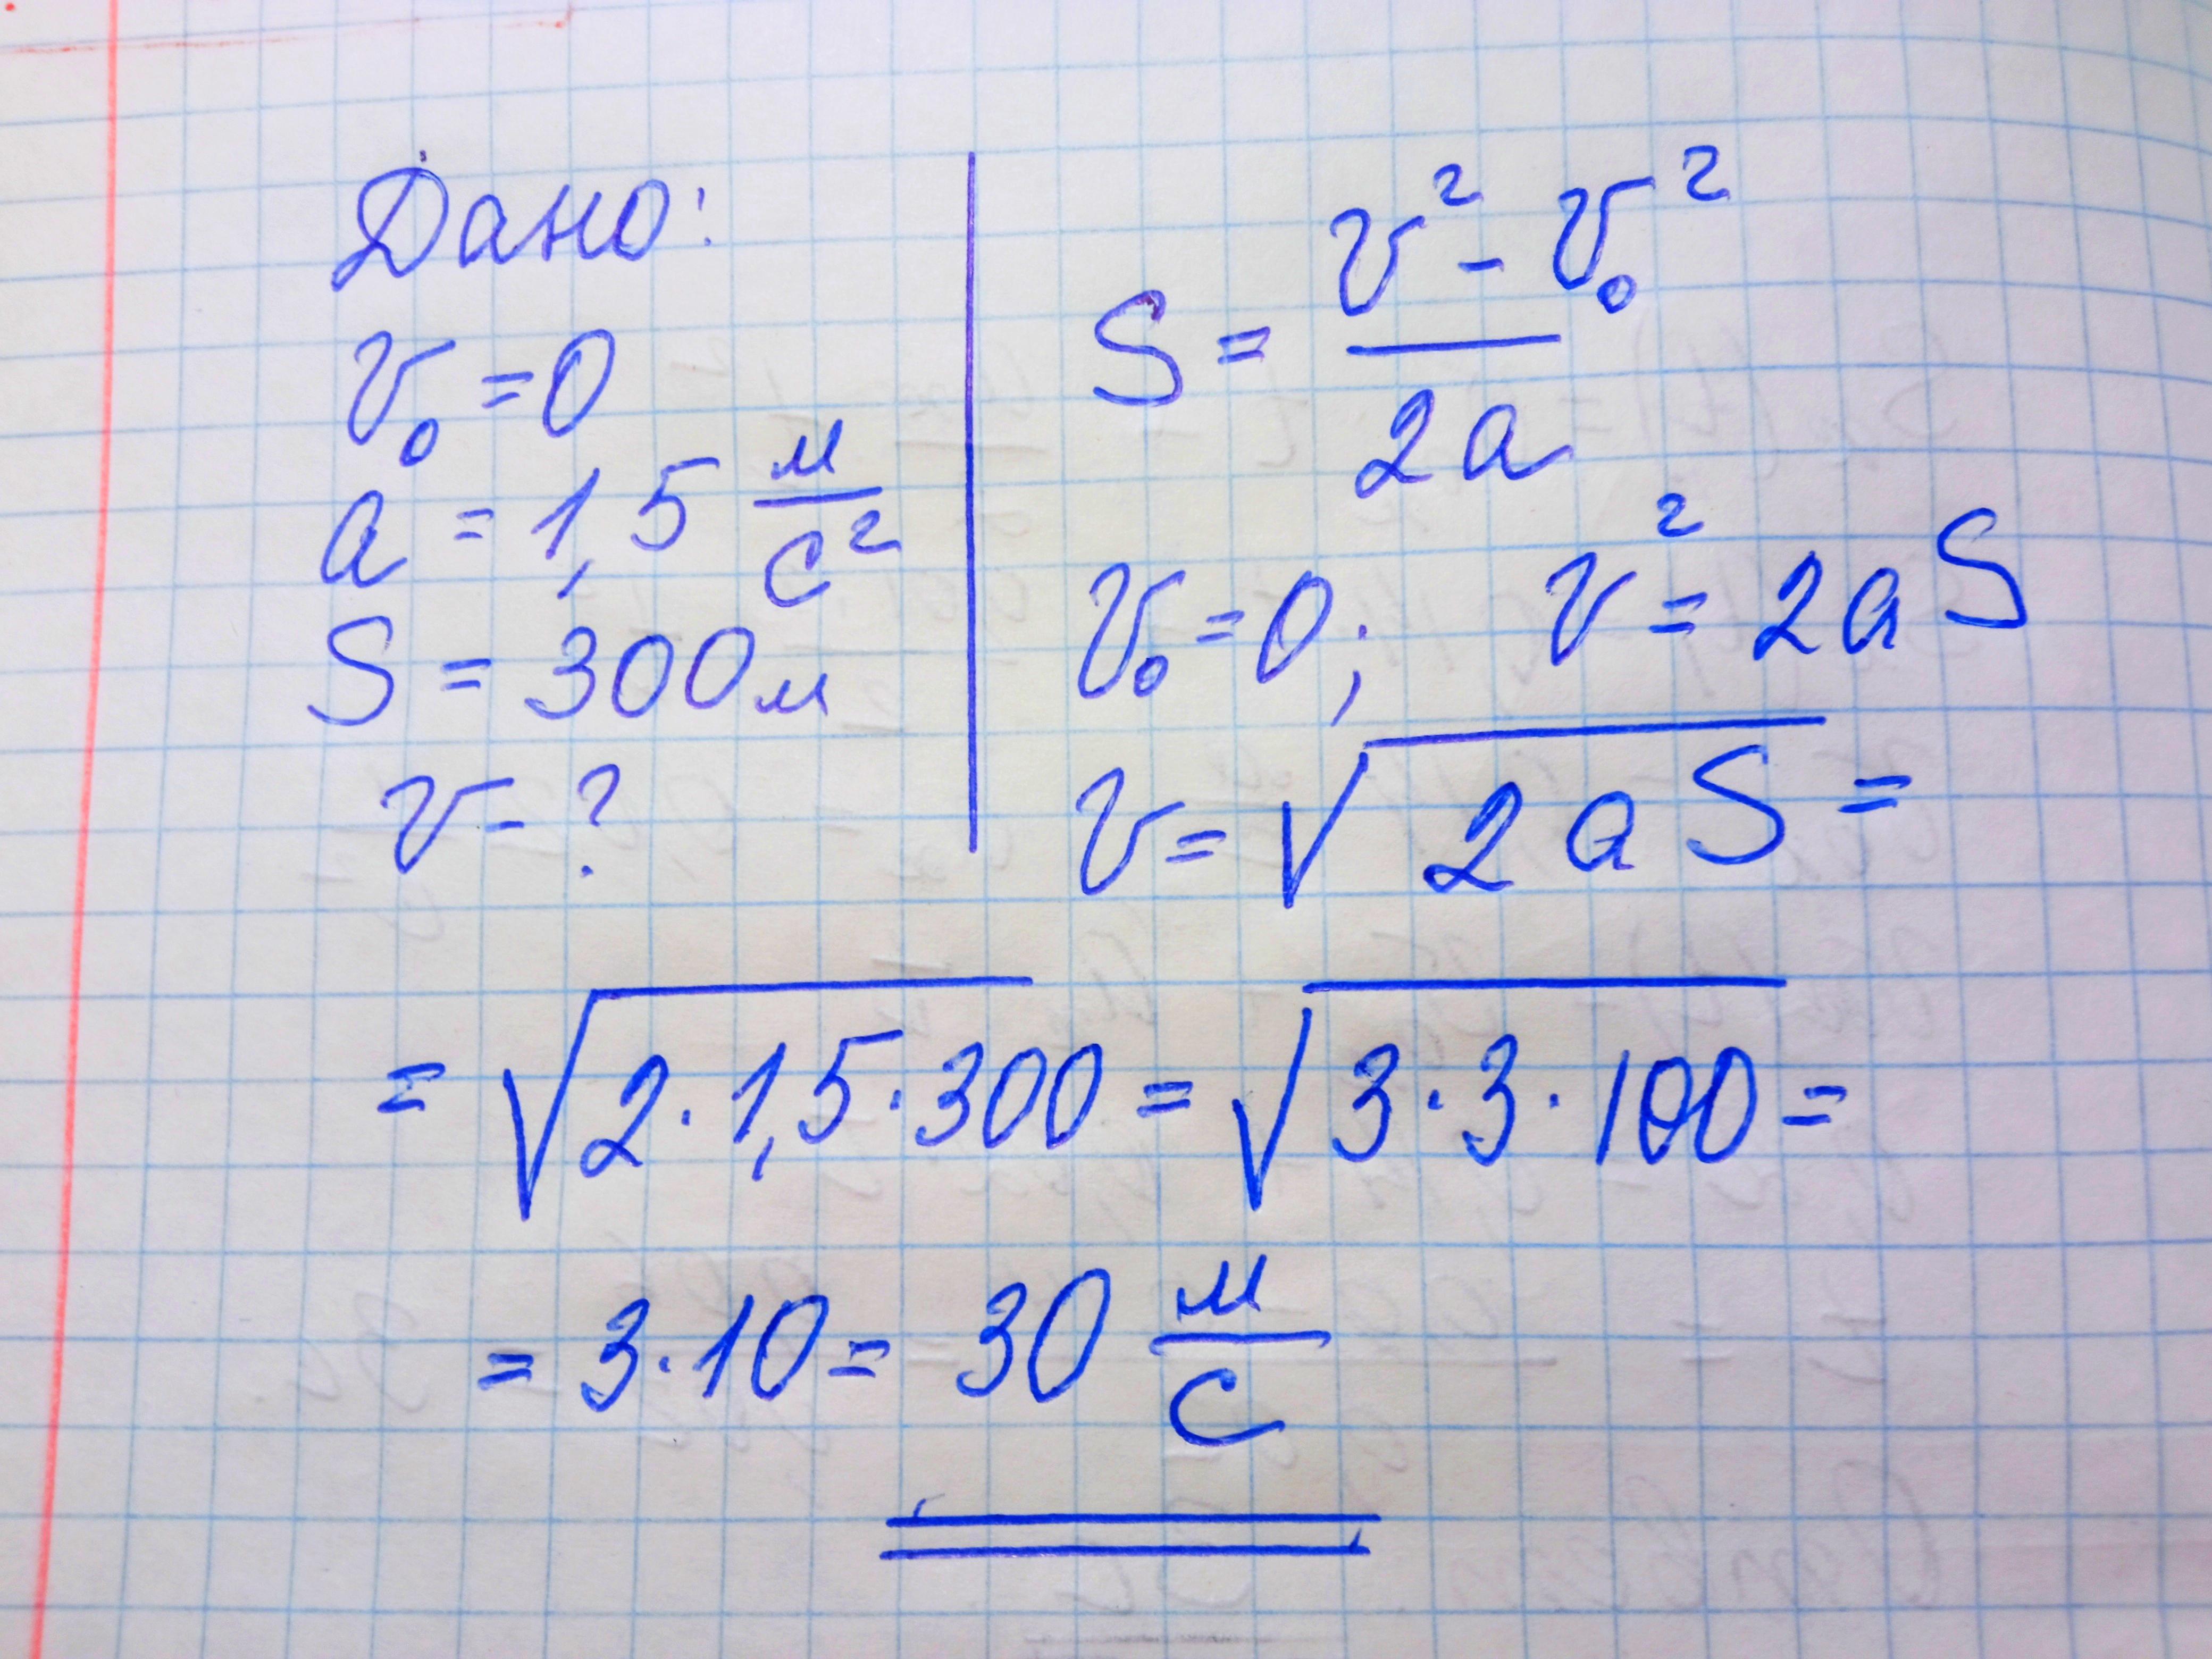 Дано:
v₀ = 0
a = 1,5 м/с²
S = 300м
v - ?
S = (v² - v₀²)/2a
v₀ = 0; v² = 2aS
v = √2aS =
= √2·1,5·300 = √3·3·100 =
= 3·10 = 30 м/с